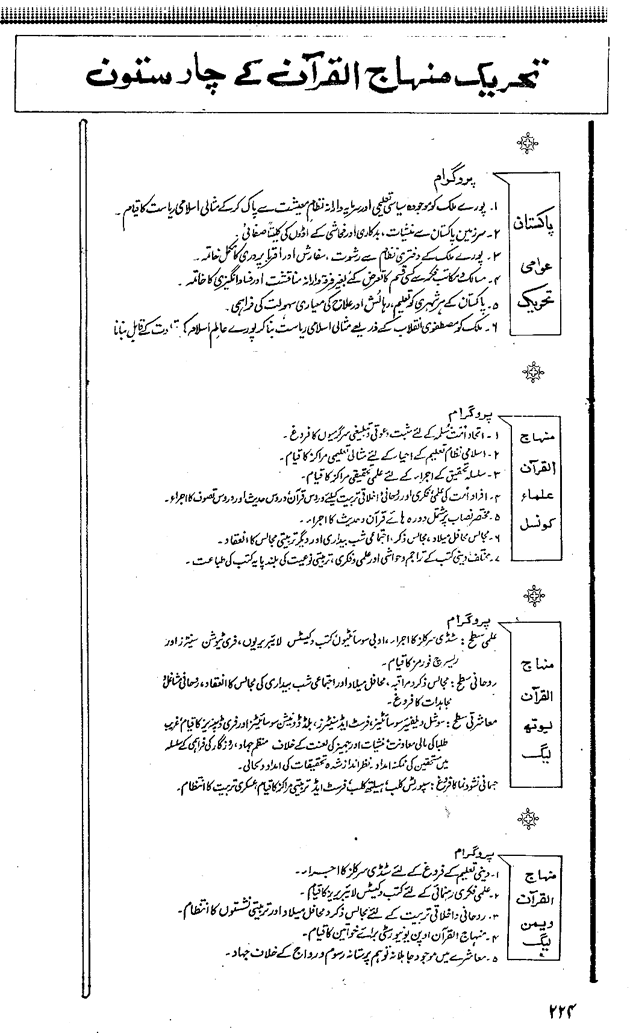 تحریک منہاج القرآن کے چار ستون
پاکستان
عوامی
تحریک
پروگرام
۱۔ پورے ملک کو موجودہ سیاسی تعلیمی اور سرمایہ دارانہ نظامِ معیشت سے پاک کر کے مثالی اسلامی ریاست کا قیام۔
۲۔ سرزمین پاکستان سے منشیات، بدکاری اور فحاشی کے اڈوں کی کلیتاً صفائی۔
۳۔ پورے ملک کے دفتری نظام سے رشوت، سفارش اور اقرباء پروری کا مکمل خاتمہ۔
۴۔ مسالک و مکاتب فکر سے کسی قسم کا تعرض کئے بغیر فرقہ وارانہ منافقت اور فساد انگیزی کا خاتمہ۔
۵۔ پاکستان کے ہر شہری کو تعلیم، رہائش اور علاج کی معیاری سہولت کی فراہمی۔
۶۔ ملک کو مصطفوی انقلاب کے ذریعے مثالی اسلامی ریاست بنا کر پورے عالم اسلام کی دت کے قابل بنانا
منہاج
القرآن
علماء
کونسل
پروگرام
۱۔ اتحاد امت مسلمہ کے لئے مثبت دعوتی و تبلیغی سرگرمیوں کا فروغ۔
۲۔ اسلامی نظام تعلیم کے احیاء کے لئے مثالی تعلیمی مراکز کا قیام۔
۳۔ سلسلہ تحقیق کے اجراء کے لئے علمی و تحقیقی مراکز کا قیام۔
۴۔ افراد امت کی علمی و فکری اور روحانی و اخلاقی تربیت کیلئے دروس قرآن، دروس حدیث اور دروس تصوف کا اجراء۔
۵۔ مختصر نصاب پر مشتمل دورہ ہائے قرآن و حدیث کا اجراء۔
۶۔ مجالس محافل میلاد، مجالس ذکر، اجتماعی شب بیداری اور دیگر تربیتی مجالس کا انعقاد۔
۷۔ مختلف دینی کتب کے تراجم و حواشی اور علمی و فکری، تربیتی نوعیت کی بلند پایہ کتب کی طباعت۔
منہاج
القرآن
یوتھ
لیگ
پروگرام
علمی سطح: سٹڈی سرکلز کا اجراء، ادبی سوسائٹیوں کتب و کیسٹس لائبریریوں، فری ٹیوشن سینٹرز اور
ریسرچ فورمز کا قیام۔
روحانی سطح: مجالس ذکر و مراقبہ، محافل میلاد اور اجتماعی شب بیداری کی مجالس کا انعقاد، روحانی مشاغل
مجاہدات کا فروغ۔
معاشرتی سطح: سوشل ویلفیئر سوسائٹیز، فرسٹ ایڈ سینٹرز، بلڈ ڈونیشن سوسائٹیز اور فری ڈسپنسریز کا قیام غریب
طلباء کی مالی معاونت، منشیات اور جہیز کی لعنت کے خلاف منظم جہاد، روزگار کی فراہمی کے سلسلہ
میں مستحقین کی ممکنہ امداد۔ نظر انداز شدہ تحقیقات کی امداد و بحالی۔
جسمانی نشوونما کا فروغ: سپورٹس کلب، ہیلتھ کلب، فرسٹ ایڈ تربیتی مراکز کا قیام، عسکری تربیت کا انتظام۔
منہاج
القرآن
ویمن
لیگ
پروگرام
۱۔ دینی تعلیم کے فروغ کے لئے سٹڈی سرکلز کا اجراء۔
۲۔ علمی و فکری رہنمائی کے لئے کتب و کیسٹس لائبریریز کا قیام۔
۳۔ روحانی و اخلاقی تربیت کے لئے مجالس ذکر و محافل میلاد اور تربیتی نشستوں کا انتظام۔
۴۔ منہاج القرآن اوپن یونیورسٹی برائے خواتین کا قیام۔
۵۔ معاشرے میں موجود جاہلانہ توہم پرستانہ رسوم و رواج کے خلاف جہاد۔
۲۲۴